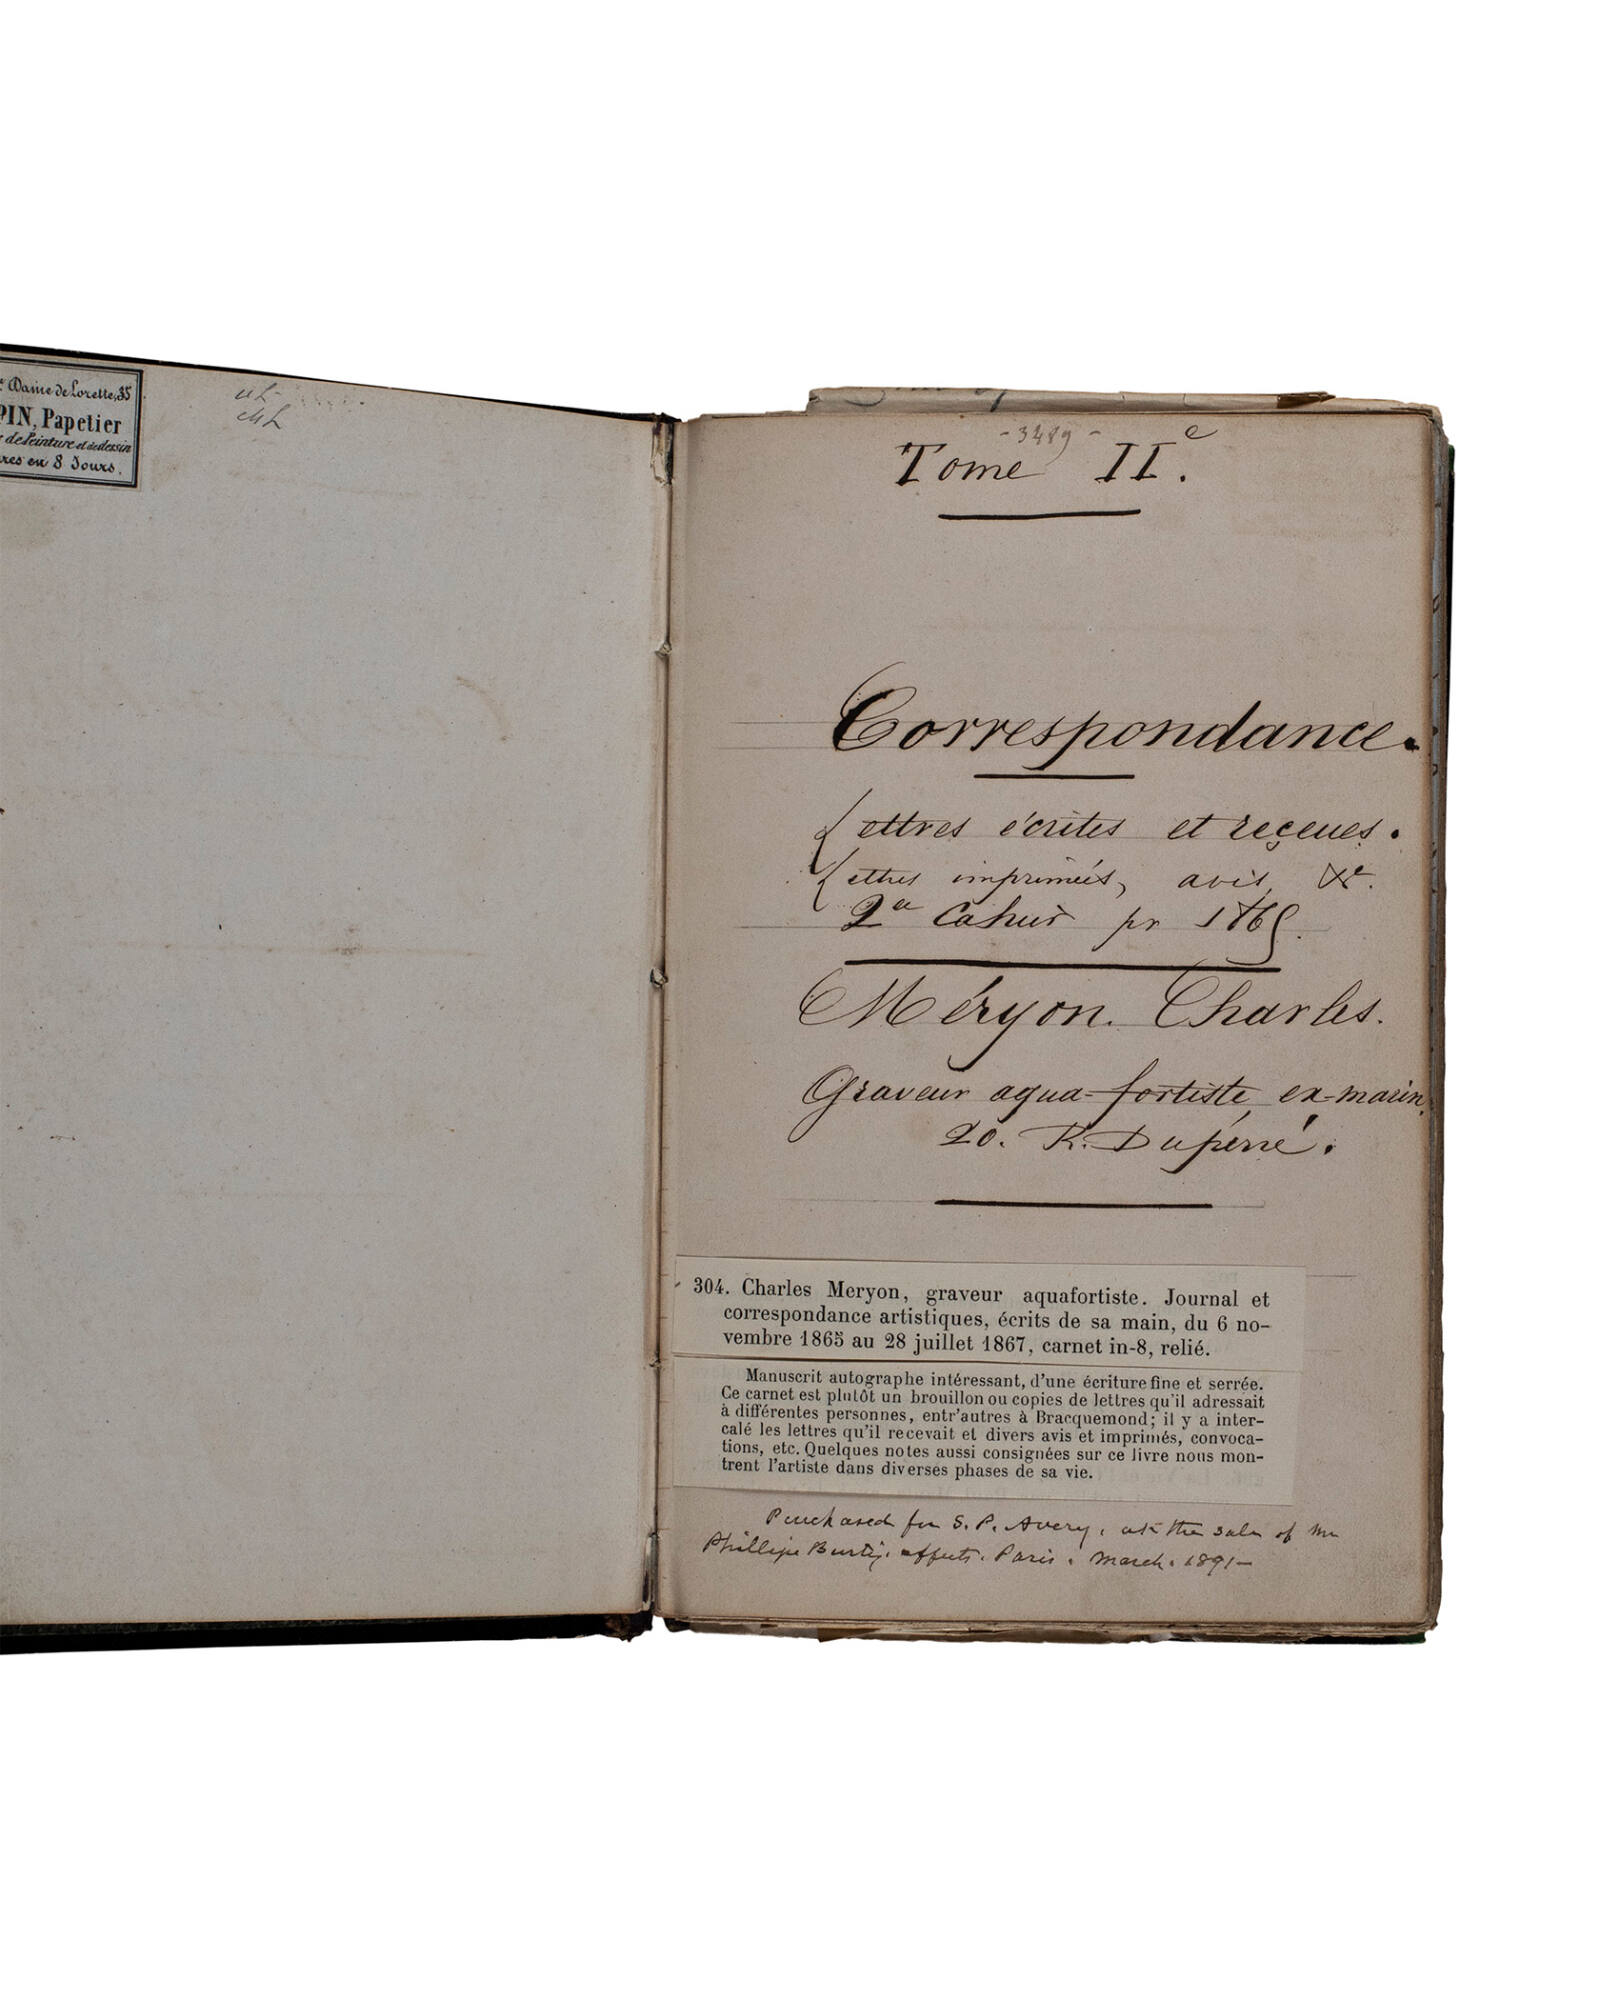 Dame de Lorette, 35
PIN, Papetier
de Peinture et de dessin
res en 8 Jours.
ML
- 3489 -
Tome IIe.
Correspondance.
Lettres écrites et reçeues.
Lettres imprimées, avis, &c.
2e Cahier pr 1865.
Méryon. Charles.
Graveur aqua-fortiste, ex-marin.
20. R. Duperré.
304. Charles Meryon, graveur aquafortiste. Journal et
correspondance artistiques, écrits de sa main, du 6 no-
vembre 1865 au 28 juillet 1867, carnet in-8, relié.
Manuscrit autographe intéressant, d'une écriture fine et serrée.
Ce carnet est plutôt un brouillon ou copies de lettres qu'il adressait
à différentes personnes, entr'autres à Bracquemond; il y a inter-
calé les lettres qu'il recevait et divers avis et imprimés, convoca-
tions, etc. Quelques notes aussi consignées sur ce livre nous mon-
trent l'artiste dans diverses phases de sa vie.
Purchased for S. P. Avery, at the sale of Mr
Phillipe Burty, effects. Paris. March. 1891-